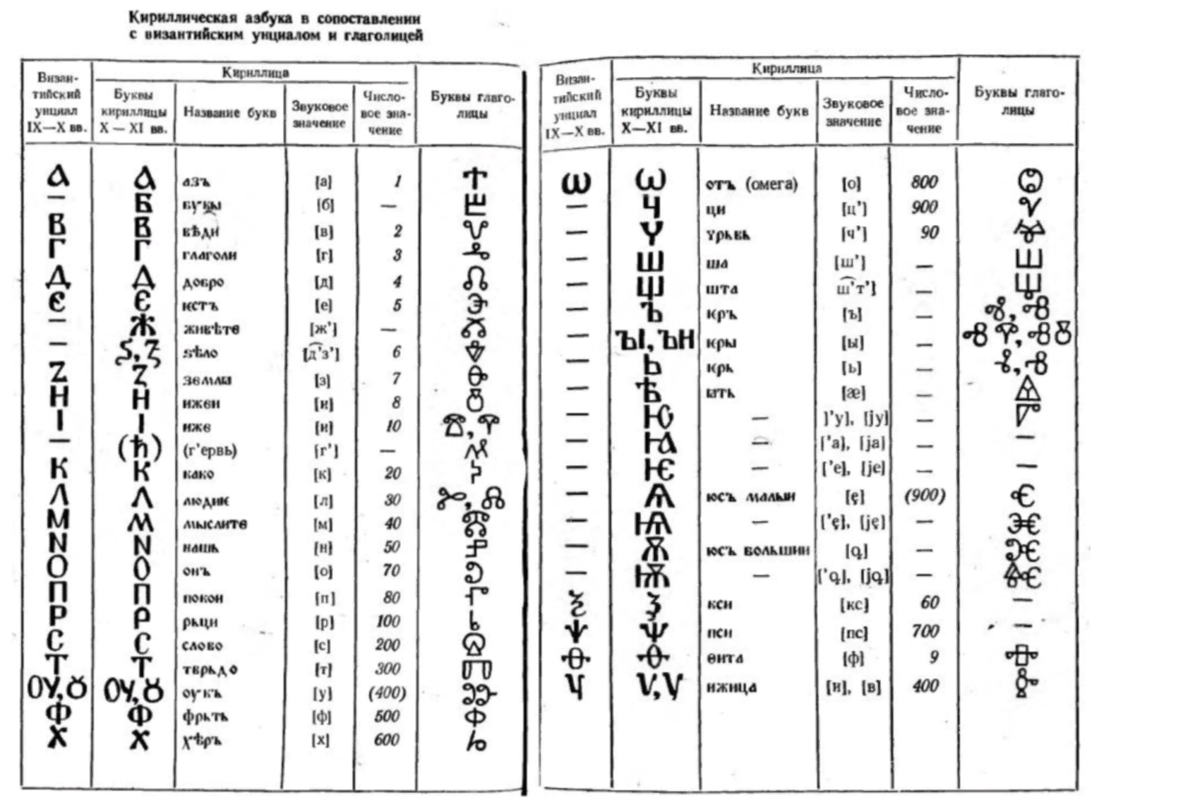 Кириллическая азбука в сопоставлении
с византийским унциалом и глаголицей
Визан-
тийский
унциал
IX—X вв.
Кириллица
Буквы
кириллицы
X — XI вв.
Название букв
Звуковое
значение
Число-
вое зна-
чение
Буквы глаго-
лицы
А А азъ [а] 1 Ⰰ
— Б букы [б] — Ⰱ
В В вѣди [в] 2 Ⰲ
Г Г глаголи [г] 3 Ⰳ
Д Д добро [д] 4 Ⰴ
Є Є ѥстъ [е] 5 Ⰵ
— Ж живѣте [ж’] — Ⰶ
— Ѕ, Ꙁ ѕѣло [д’з’] 6 Ⰷ
Z Ꙁ земл҄ꙗ [з] 7 Ⰸ
Н Н ижеи [и] 8 Ⰹ
І І иже [и] 10 Ⰺ, Ⰻ
— (Ћ) (г’ервь) [г’] — Ⰼ
К К како [к] 20 Ⰽ
Л Л людиѥ [л] 30 Ⰾ
М М мыслите [м] 40 Ⰿ
N N нашь [н] 50 Ⱀ
О О онъ [о] 70 Ⱁ
П П покои [п] 80 Ⱂ
Р Р рьци [р] 100 Ⱃ
С С слово [с] 200 Ⱄ
Т Т тврьдо [т] 300 Ⱅ
ОУ, Ȣ ОУ, Ȣ оукъ [у] (400) Ⱆ
Ф Ф фрьтъ [ф] 500 Ⱇ
Х Х хѣръ [х] 600 Ⱈ
Визан-
тийский
унциал
IX—X вв.
Кириллица
Буквы
кириллицы
X—XI вв.
Название букв
Звуковое
значение
Число-
вое зна-
чение
Буквы глаго-
лицы
Ѡ Ѡ отъ (омега) [о] 800 Ⱉ
— Ц ци [ц’] 900 Ⱌ
— Ч чрьвь [ч’] 90 Ⱍ
— Ш ша [ш’] — Ⱎ
— Щ шта [ш’т’] — Ⱋ
— Ъ ѥръ [ъ] —
— ЪІ, ЪН ѥры [ы] —
— Ь ѥрь [ь] —
— Ѣ ꙗть [æ] — Ⱑ
— Ю — [’у], [jу] — Ⱓ
— Ꙗ — [’а], [jа] — —
— Ѥ — [’е], [jе] — —
— Ѧ юсъ малыи [ę] (900) Ⱔ
— Ѩ — [’ę], [ję] — Ⱗ
— Ѫ юсъ большии [ǫ] — Ⱘ
— Ѭ — [’ǫ], [jǫ] — Ⱙ
Ѯ Ѯ кси [кс] 60 —
Ѱ Ѱ пси [пс] 700 —
Ѳ Ѳ ѳита [ф] 9 Ⱚ
Ч Ѵ, Ѵ ижица [и], [в] 400 Ⱛ